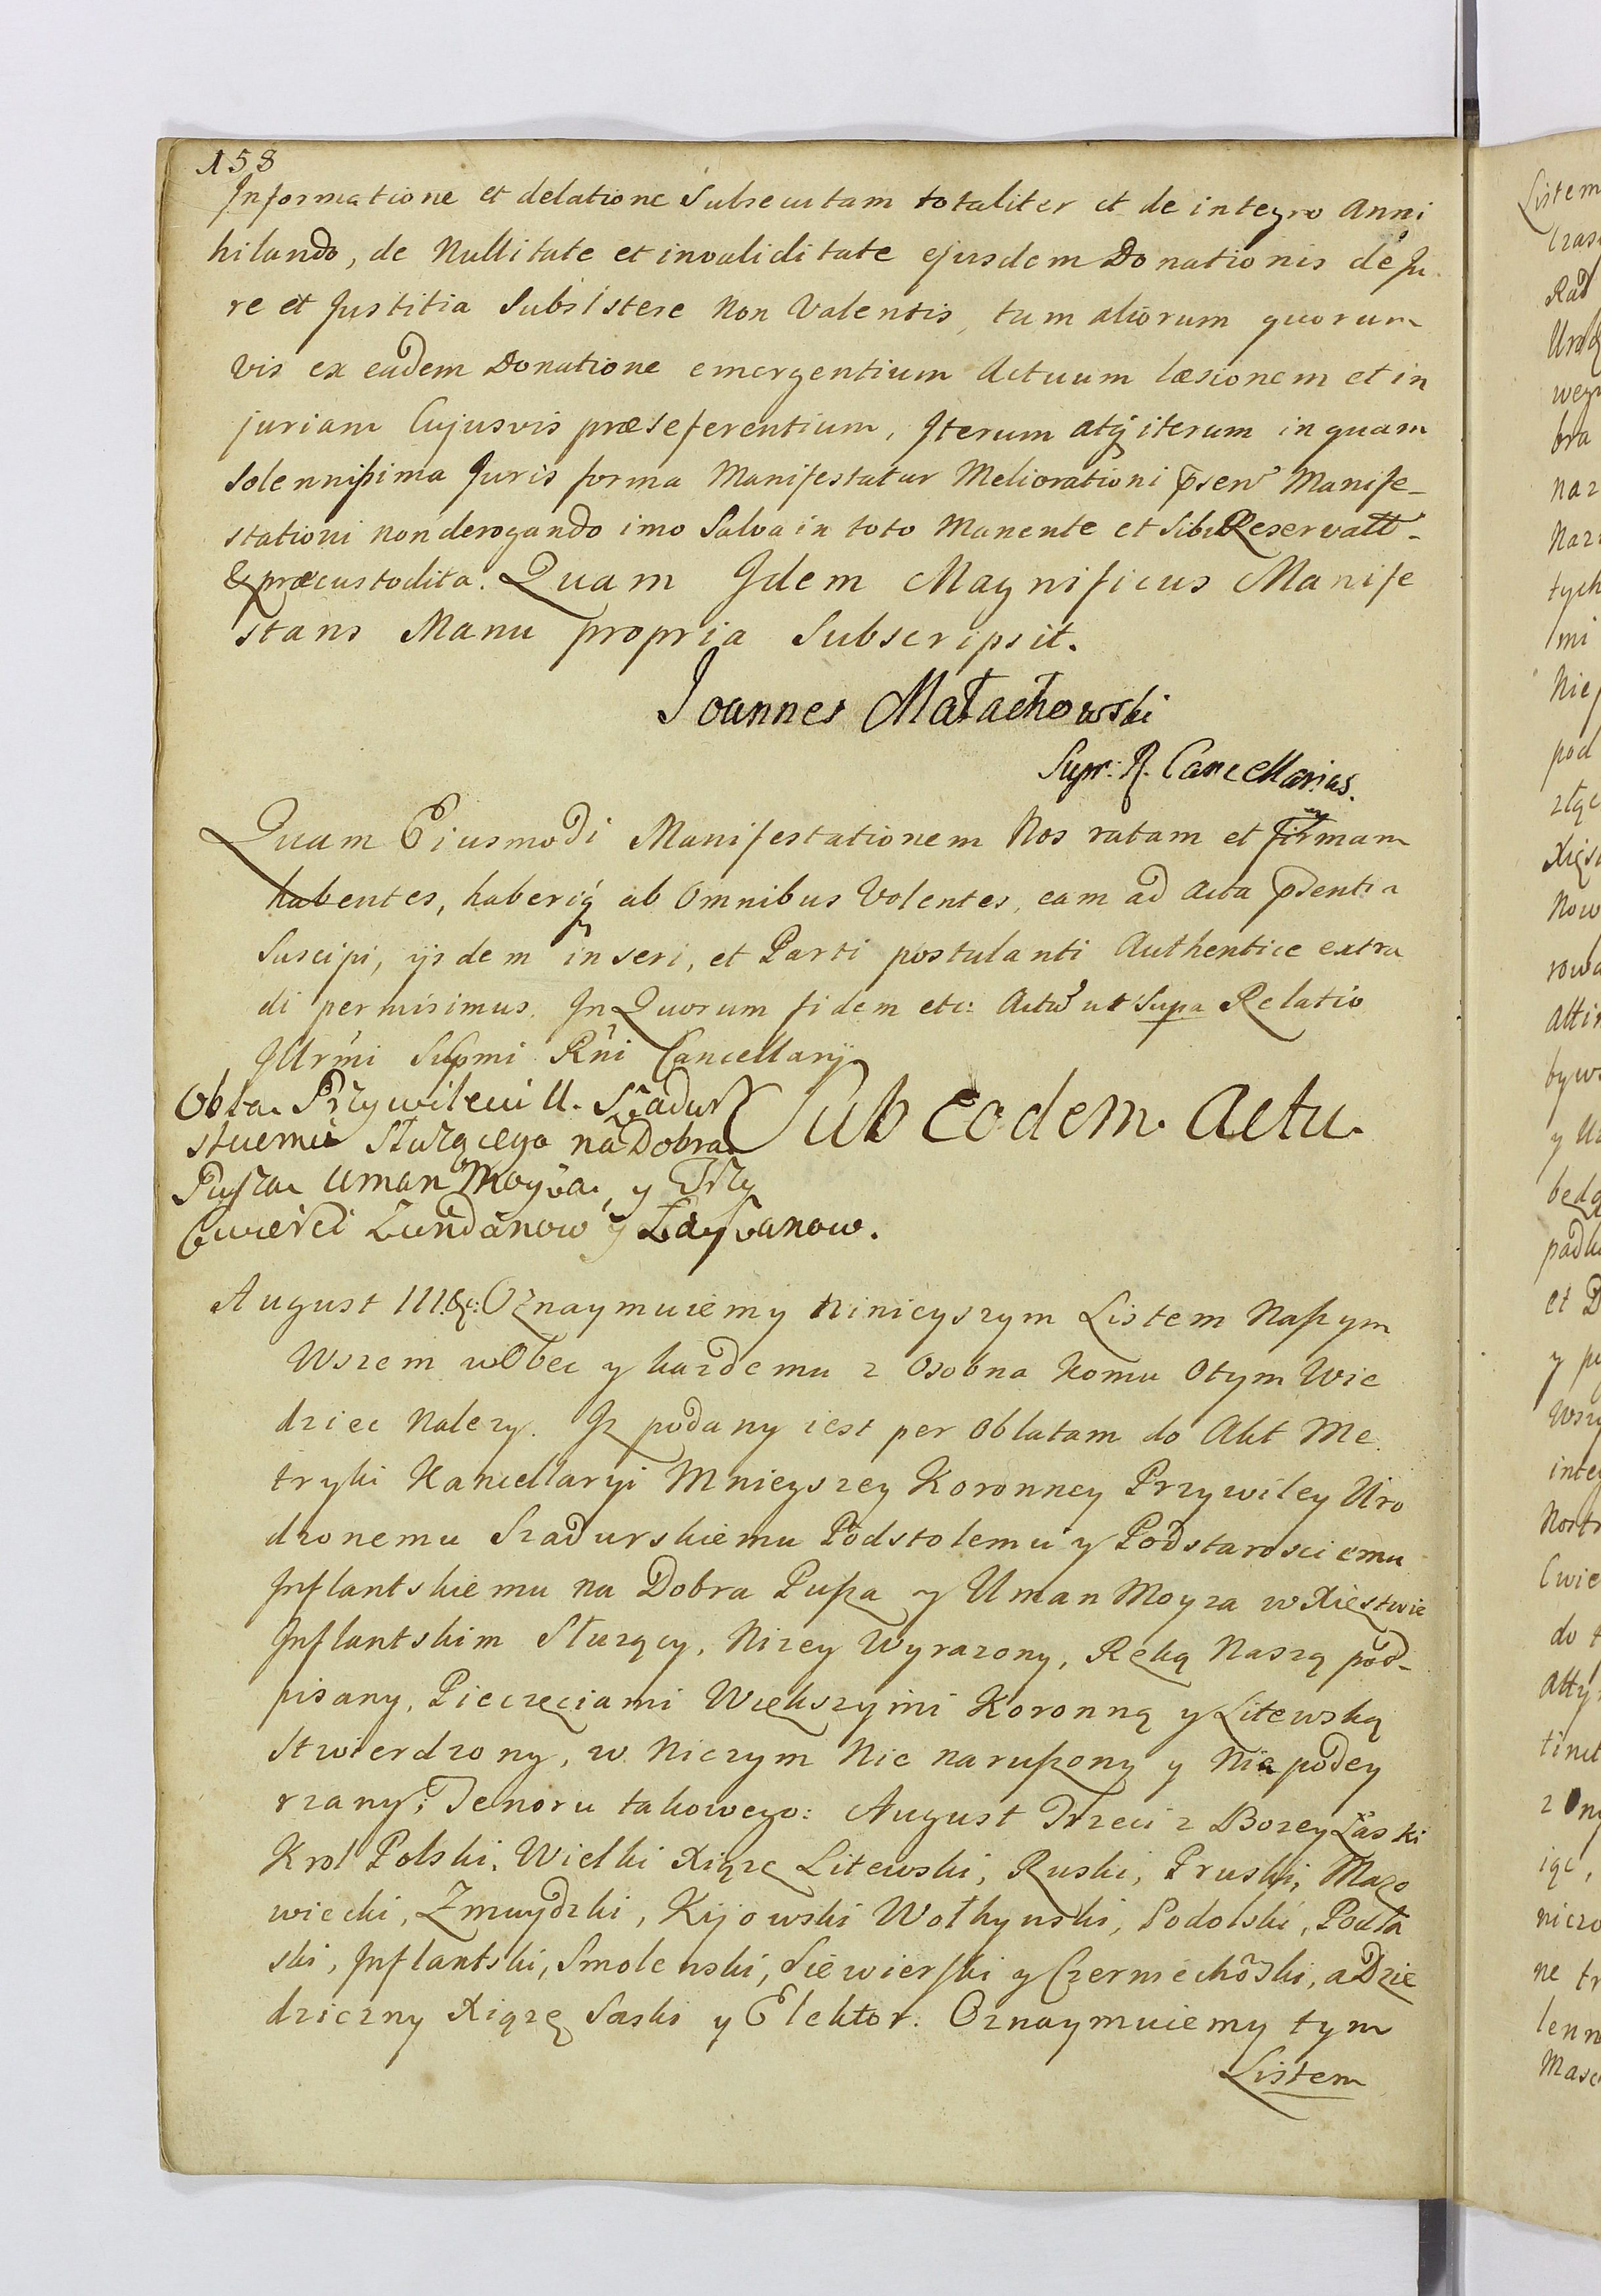 158
Informatione et delatione Subsecutam totaliter et de integro Anni
hilando, de Nullitate et invaliditate ejusdem Donationis de Ju
re et Justitia Subsistere Non Valentis, tum aliorum quorum
vis ex eadem Donatione emergentium Actuum læsionem et in
juriam Cujusvis præseferentium, Iterum atq iterum in quam
Solennissima Juris forma Manifestatur Meliorationi Manife-
stationi non derogando imo Salva in toto Manente et Sibi Reservatt-
& præcustodita. Quam Idem Magnificus Manife
stans Manu propria Subscripsit.
Joannes Małachowski
Supr: R. Cancellarius.
Quam Eiusmodi Manifestationem Nos ratam et firmam
habentes, haberiq ab Omnibus Volentes, eam ad Acta pdentia
Suscipi, ijsdem inseri, et Parti postulanti Authentice extra
di permisimus. In Quorum fidem etc: Actu ut Supa Relatio
Illrmi Supmi Rni Cancellarij
Obta. Przywileiu U. Szadur
skiemu Służącego na Dobra
Pusza Uman Moyza, y Trzy
Cwierci Zundanow y Zaysanow.
Sub eodem. Actu.
August III. &c: Oznaymuiemy Ninieyszym Listem Naszym
Wszem wObec y każdemu z Osobna Komu Otym Wie
dziec Nalezy. Iz podany iest per Oblatam do Akt Me
tryki Kancellaryi Mnieyszey Koronney Przywiley Uro
dzonemu Szadurskiemu Podstolemu y Podstarosciemu
Inflantskiemu na Dobra Pusza y Uman Moyza w Xięstwie
Inflantskim Służący, Nizey Wyrazony, Ręką Naszą pod-
pisany, Pieczęciami Większymi Koronną y Litewską
Stwierdzony, w Niczym Nie naruszony y Nie podey
rzany; Tenoru takowego: August Trzeci z Bozey Łaski
Krol Polski, Wielki Xiąze Litewski, Ruski, Pruski, Mazo
wiecki, Zmuydzki, Kijowski Wołhynski, Podolski, Podla
ski, Inflantski, Smolenski, Siewierski y Czerniechoski, a Dzie
dziczny Xiąze Saski y Elektor. Oznaymuiemy tym
Listem